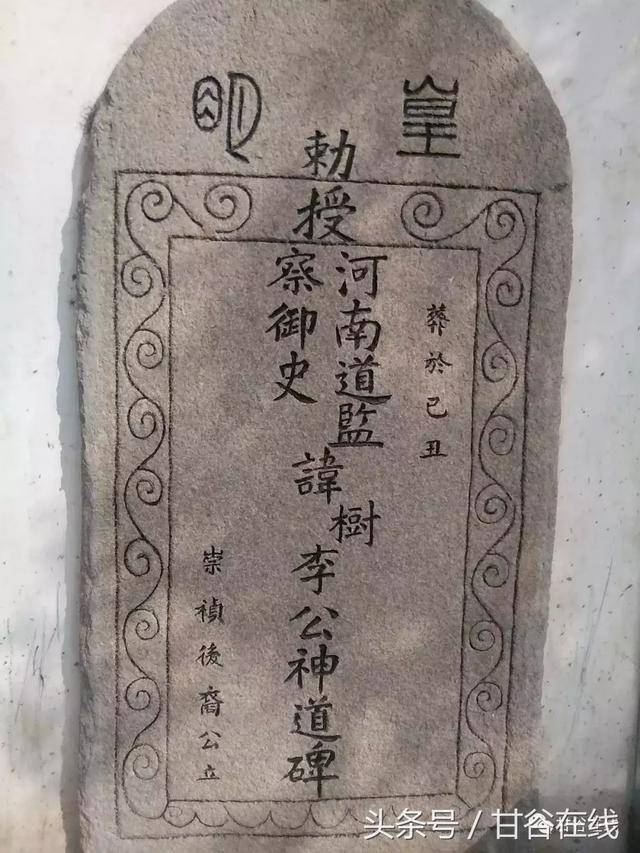 皇明
葬於己丑
勅授河南道監察御史諱樹李公神道碑
崇禎後裔公立
头条号／甘谷在线